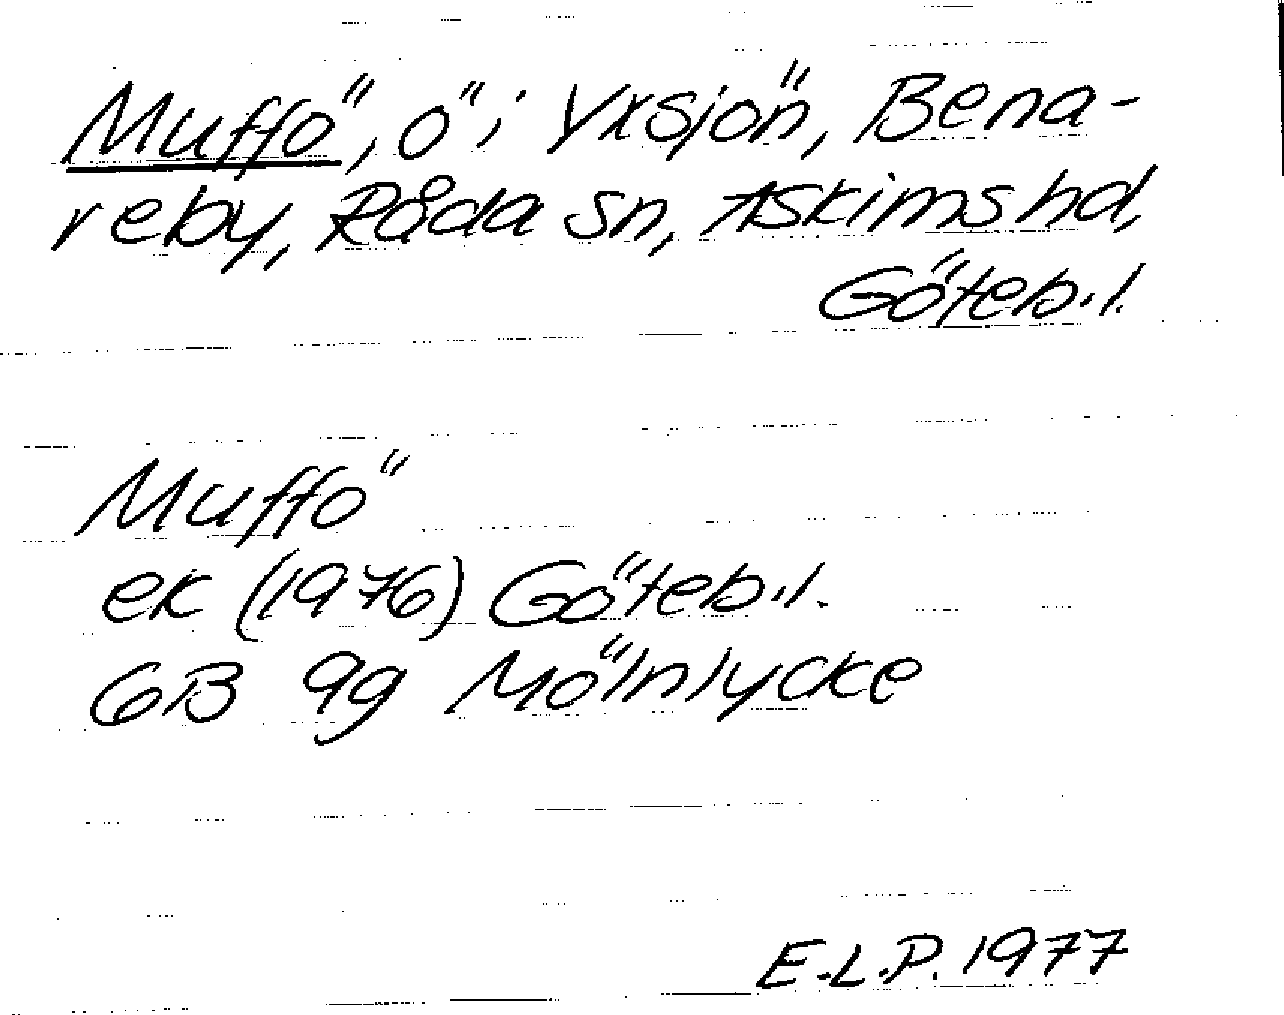 Muffö, ö i Yxsjön, Bena-
reby, Råda sn, Askims hd,
Göteb.l.
Muffö
ek (1976) Göteb.l.
GB 9g Mölnlycke
E.L.P. 1977